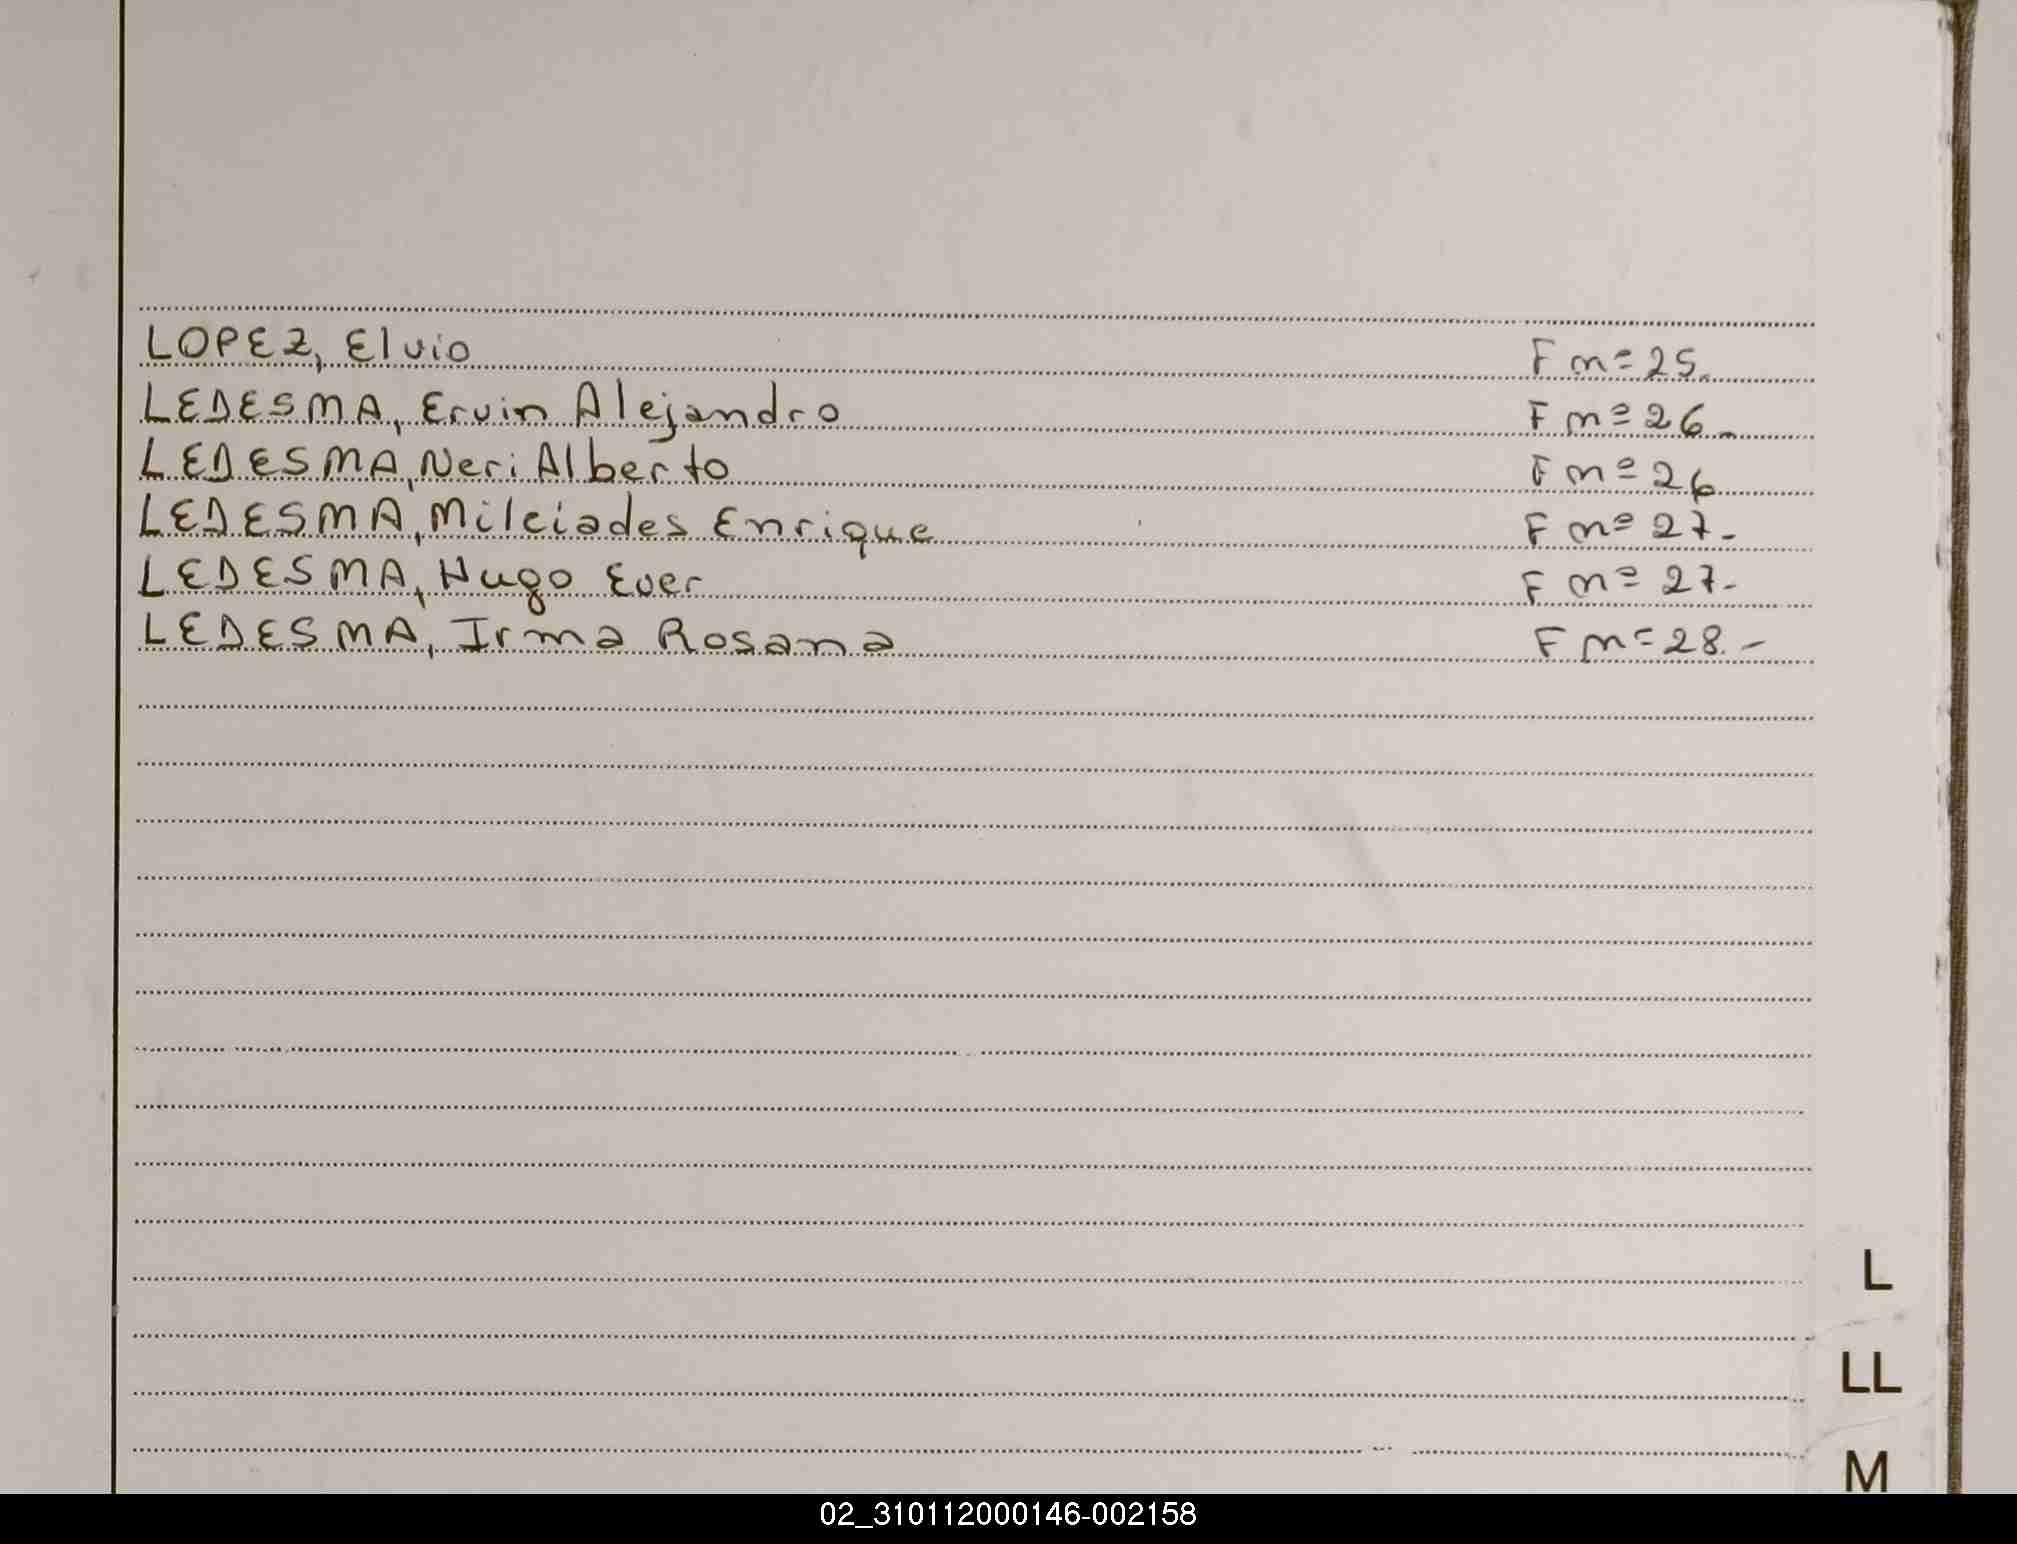 LOPEZ, Elvio F nº 25.
LEDESMA, Ervin Alejandro F nº 26.-
LEDESMA, Neri Alberto F nº 26
LEDESMA, Milciades Enrique F nº 27.-
LEDESMA, Hugo Ever F nº 27.-
LEDESMA, Irma Rosana F nº 28.-
L
LL
M
02_310112000146-002158